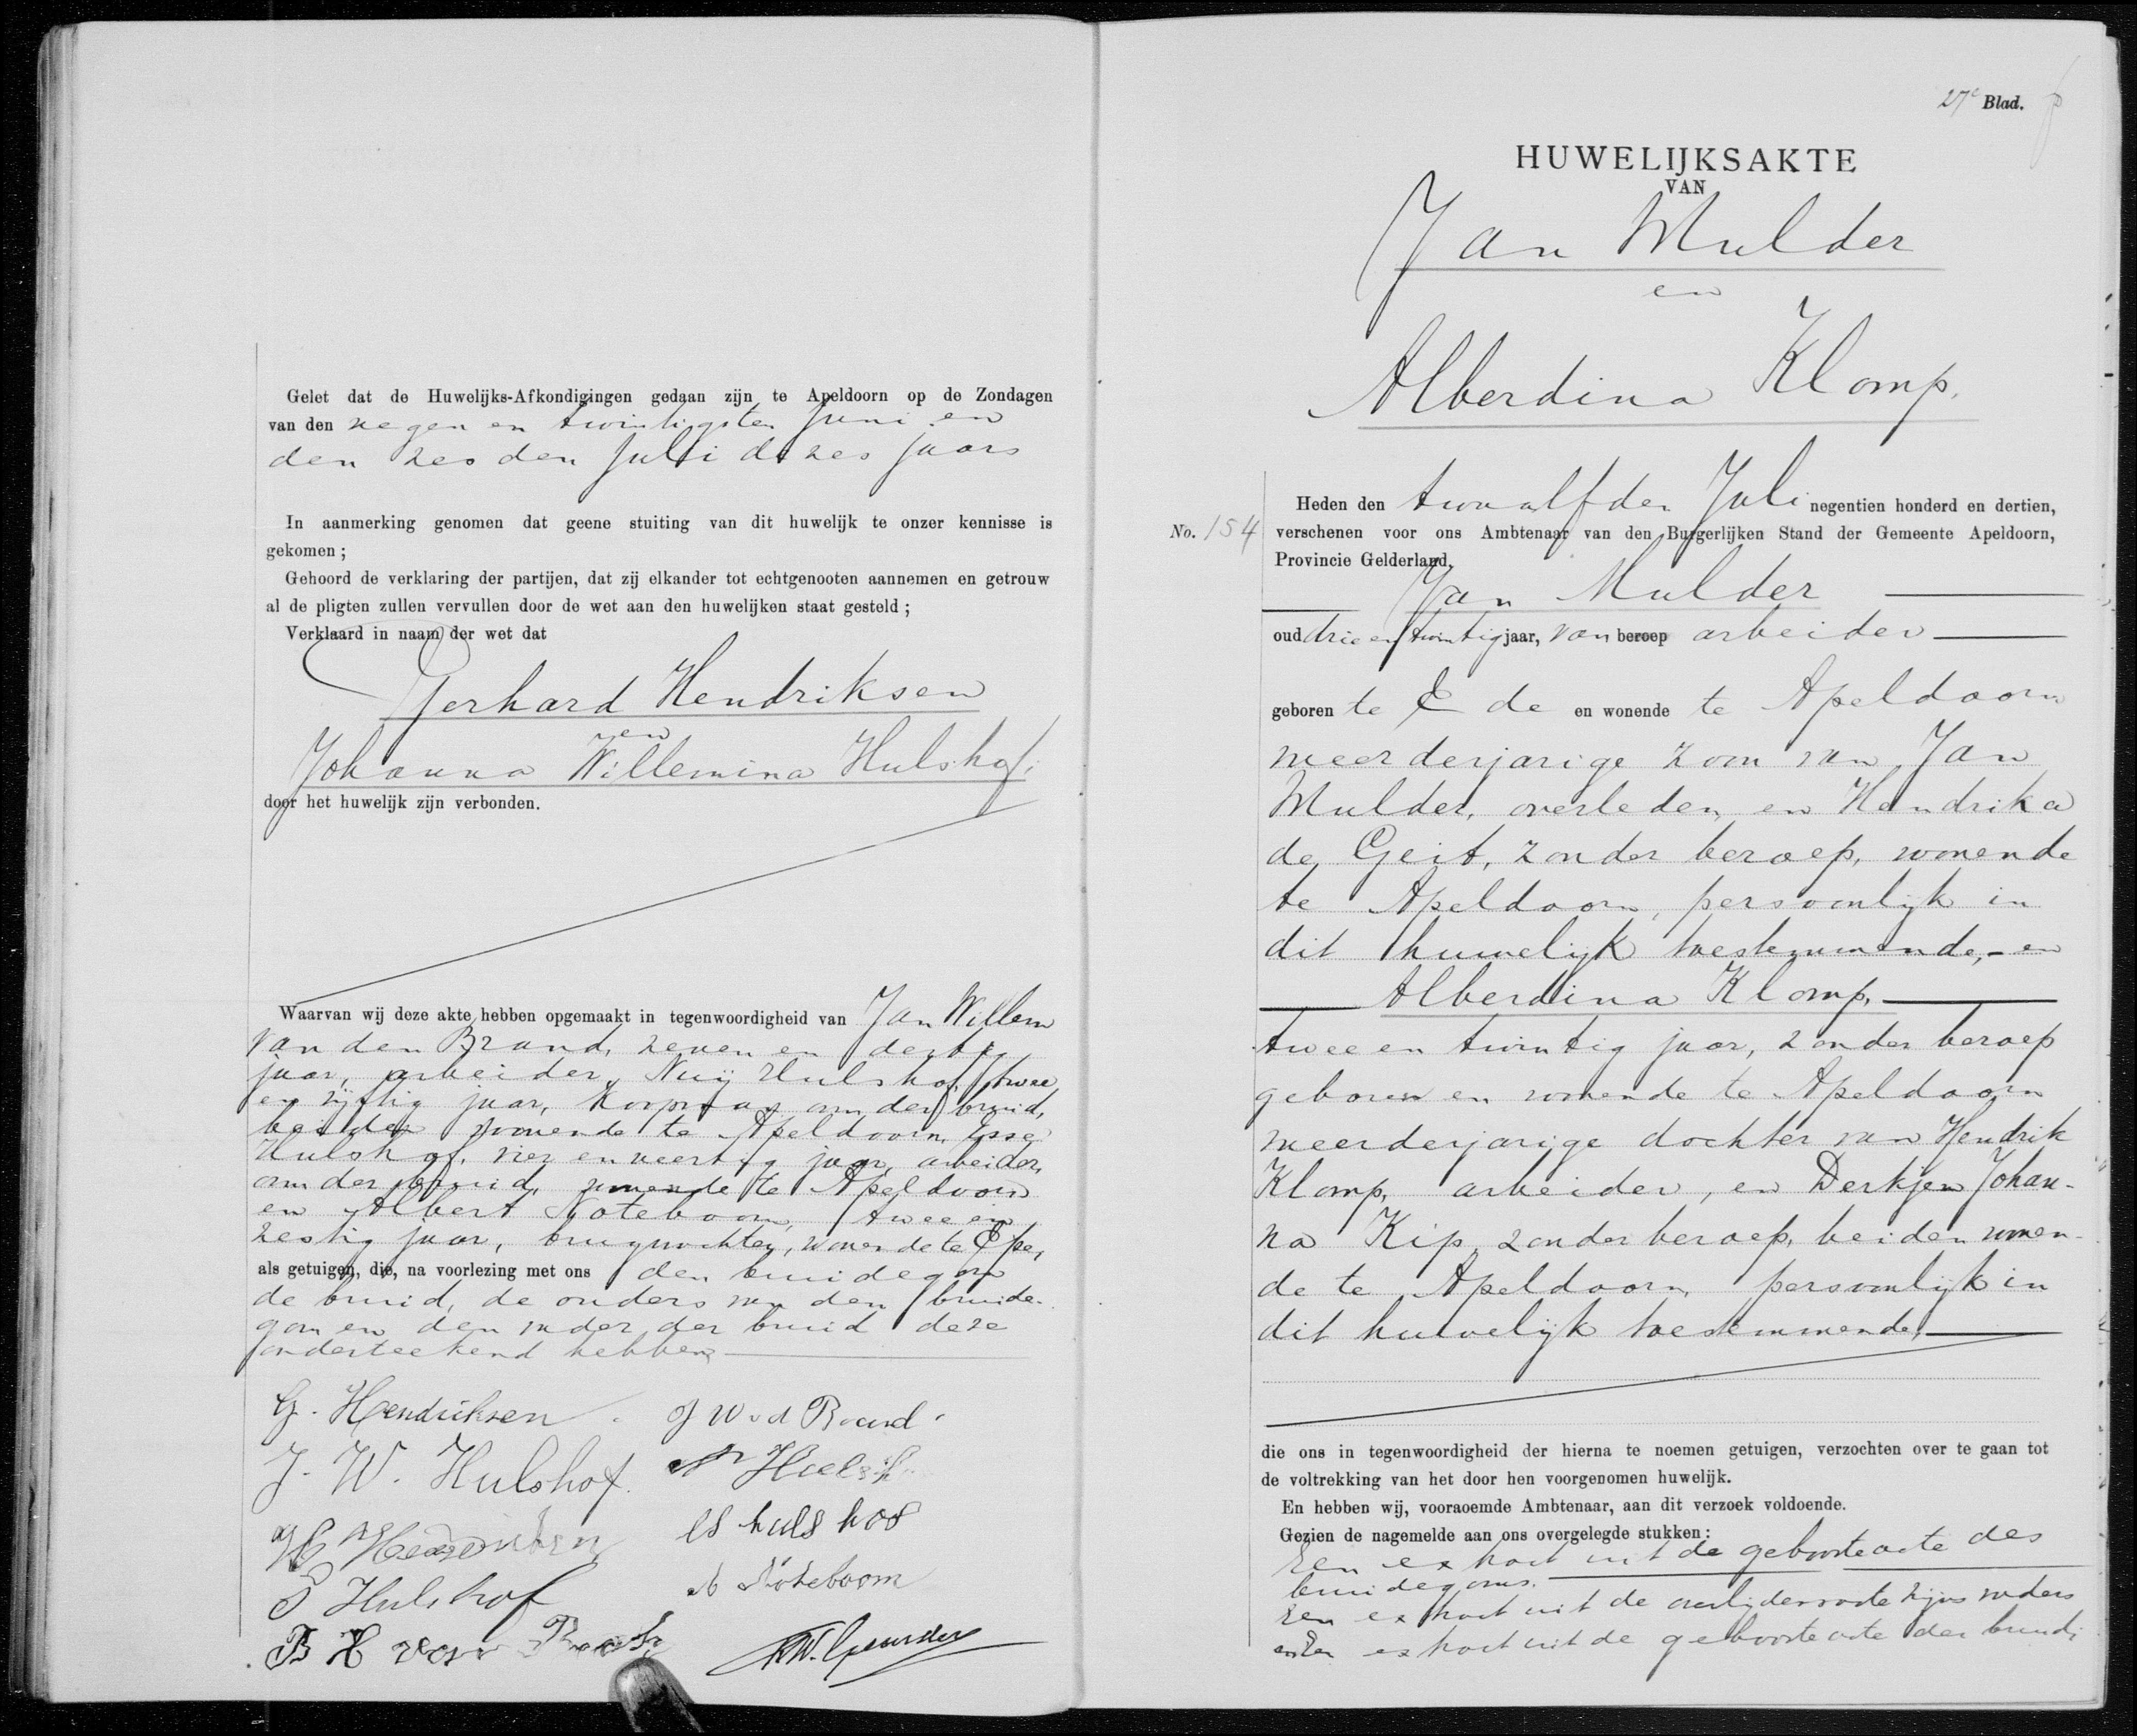 Gelet dat de Huwelijks-Afkondigingen gedaan zijn te Apeldoorn op de Zondagen
van den negen en twintigsten Juni en
den zesden Juli dezes jaars
In aanmerking genomen dat geene stuiting van dit huwelijk te onzer kennisse is
gekomen;
Gehoord de verklaring der partijen, dat zij elkander tot echtgenooten aannemen en getrouw
al de pligten zullen vervullen door de wet aan den huwelijken staat gesteld;
Verklaard in naam der wet dat
Gerhard Hendriksen
en
Johanna Willemina Hulshof,
door het huwelijk zijn verbonden.
Waarvan wij deze akte hebben opgemaakt in tegenwoordigheid van Jan Willem
van den Brand, zeven en dertig
jaar, arbeider, Hulshof, twee
en vijftig jaar, koopman, oom der bruid,
beiden wonende te Apeldoorn,
Hulshof, vier en veertig jaar, arbeider,
oom der bruid, wonende te Apeldoorn
en Albert Noteboom, twee en
zestig jaar, brugwachter, wonende te Epe,
als getuigen, die, na voorlezing met ons den bruidegom
de bruid, de ouders van den bruide-
gom en den vader der bruid deze
onderteekend hebben
G. Hendriksen. J W v d Brand
J. W. Hulshof. Hulshof
Hendriksen hulshof
Hulshof A Noteboom
B H van
27e Blad.
HUWELIJKSAKTE
VAN
Jan Mulder
en
Alberdina Klomp.
Heden den twaalfden Juli negentien honderd en dertien,
No. 154 verschenen voor ons Ambtenaar van den Burgerlijken Stand der Gemeente Apeldoorn,
Provincie Gelderland,
Jan Mulder
oud drie en twintig jaar, van beroep arbeider
geboren te Ede en wonende te Apeldoorn
meerderjarige zoon van Jan
Mulder, overleden, en Hendrika
de Geit, zonder beroep, wonende
te Apeldoorn, persoonlijk in
dit huwelijk toestemmende,- en
Alberdina Klomp,
twee en twintig jaar, zonder beroep
geboren en wonende te Apeldoorn
meerderjarige dochter van Hendrik
Klomp, arbeider, en Derkjen Johan-
na Kip, zonder beroep, beiden wonen-
de te Apeldoorn, persoonlijk in
dit huwelijk toestemmende,
die ons in tegenwoordigheid der hierna te noemen getuigen, verzochten over te gaan tot
de voltrekking van het door hen voorgenomen huwelijk.
En hebben wij, vooraoemde Ambtenaar, aan dit verzoek voldoende.
Gezien de nagemelde aan ons overgelegde stukken:
Een extract uit de geboorteacte des
bruidegoms.
Een extract uit de overlijdensacte zijns vaders
en een extract uit de geboorteacte der bruid